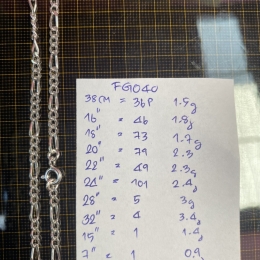 FG040
38cm = 36p 1.5g
16" = 46 1.8g
18" = 73 1.7g
20" = 79 2.3
22" = 49 2.3g
24" = 101 2.4g
28" = 5 3g
32" = 4 3.4g
15" = 1 1.4g
7" = 1 0.9